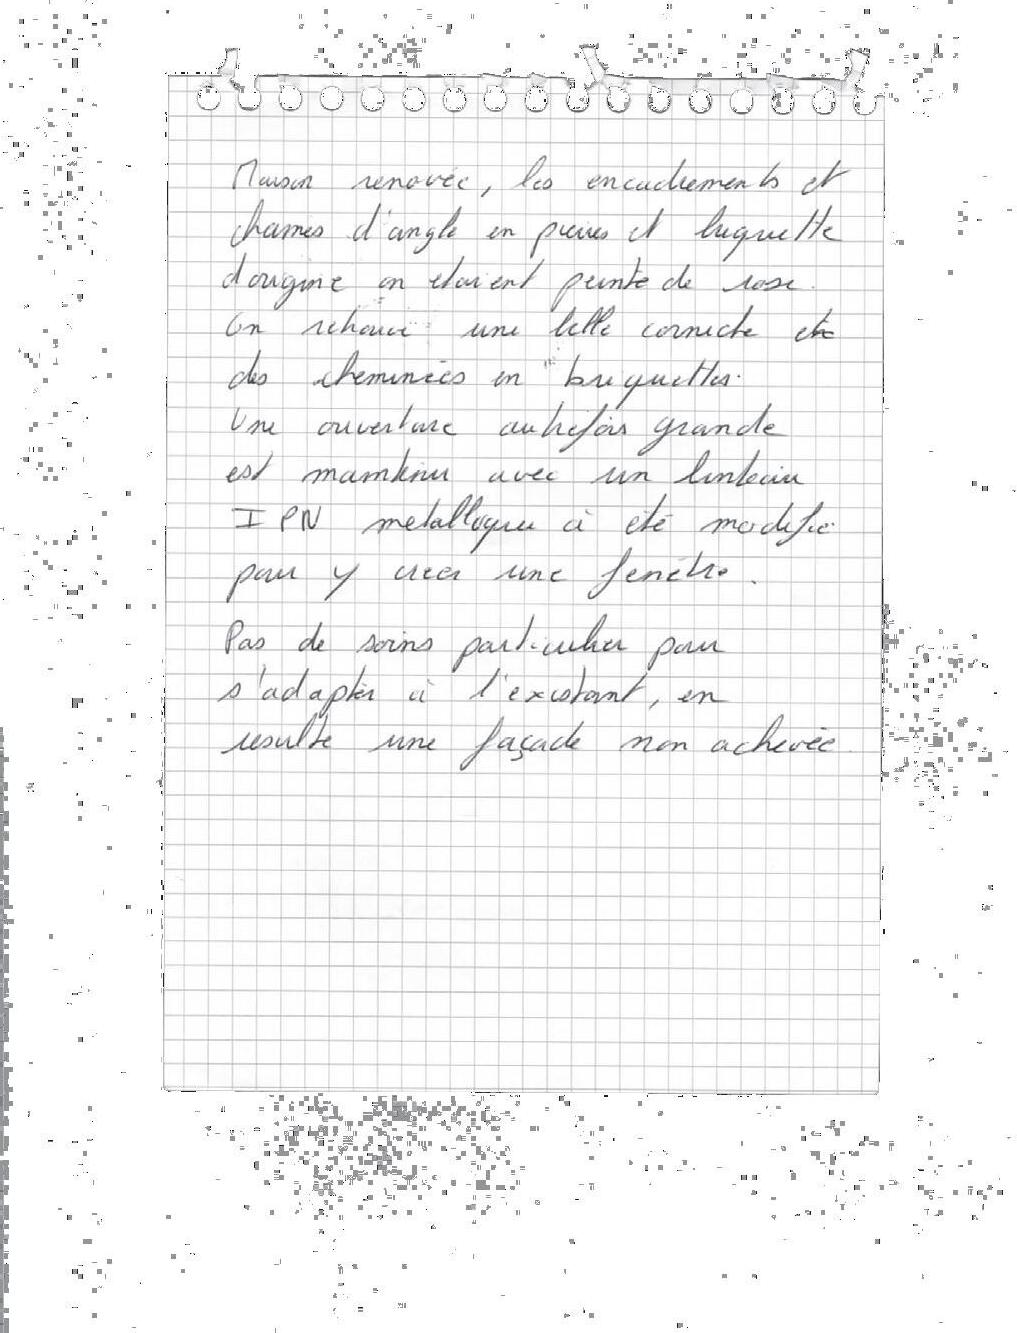 Maison renovée, les encadrements et
chaines d'angle en pierres et briquette
d'origine on etaient peinte de rose.
On retrouve une belle corniche et
des cheminées en briquettes.
Une ouverture autrefois grande
est maintenu avec un linteau
IPN metallique à été modifié
pour y creer une fenêtre.
Pas de soins particulier pour
s'adapter à l'existant, en
resulte une façade non achevée